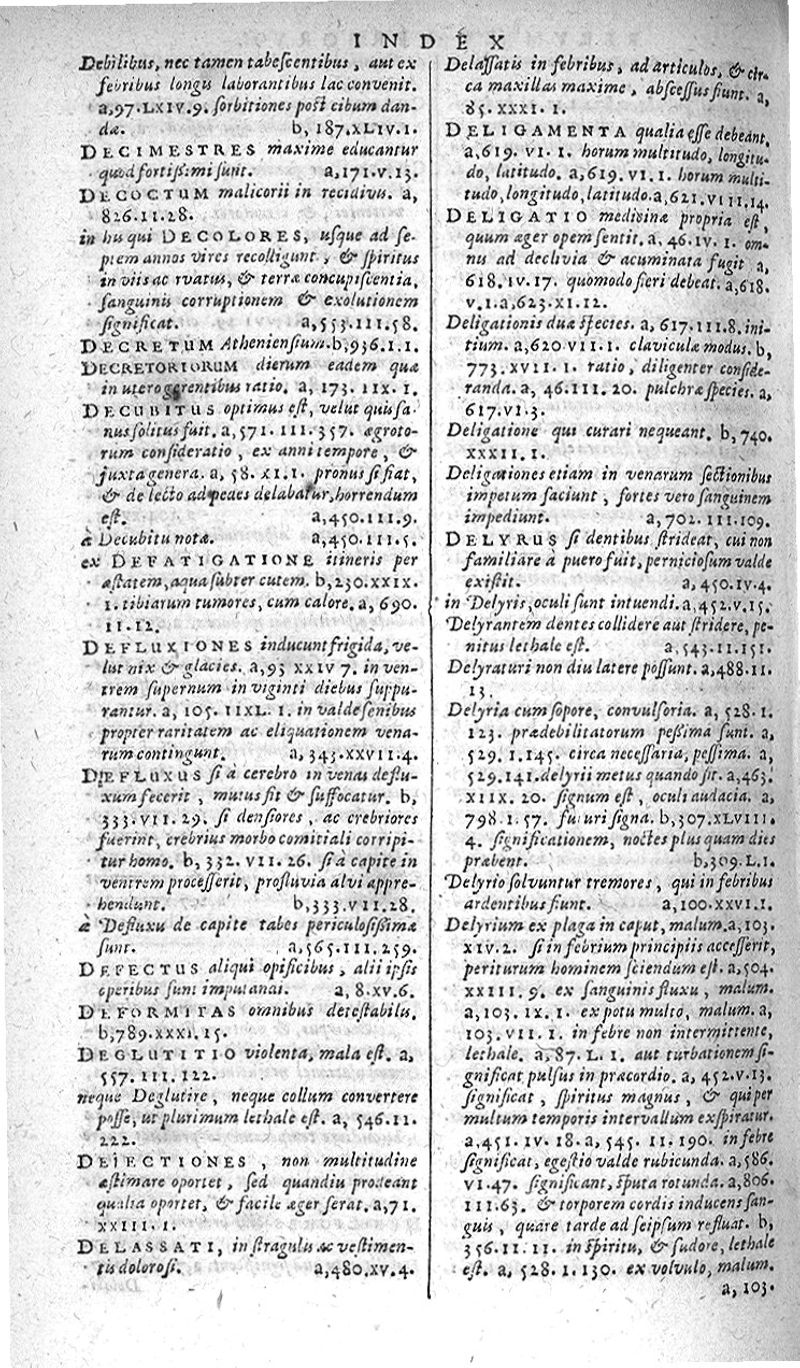 INDEX
Debilibus, nec tamen tabescentibus, aut ex
febribus longis laborantibus lac convenit.
a, 97. LXIV. 9. sorbitiones post cibum dan-
dæ. b, 187. XLIV. 1.
DECIMESTRES maxime educantur
quod fortißimi sunt. a, 171. V. 13.
DECOCTUM malicorii in recidivis. a,
826. II. 28.
in his qui DECOLORES, usque ad se-
ptem annos vires recolligunt, & spiritus
in viis ac rvatus, & terræ concupiscentia,
sanguinis corruptionem & exolutionem
significat. a, 553. III. 58.
DECRETUM Atheniensium. b, 936. I. 1.
DECRETORIORUM dierum eadem quæ
in utero gerentibus ratio. a, 173. IIX. 1.
DECUBITUS optimus est, velut quis sa-
nus solitus fuit. a, 571. III. 357. ægroto-
rum consideratio, ex anni tempore, &
juxta genera. a, 58. XI. 1. pronus si fiat,
& de lecto ad pedes delabatur, horrendum
est. a, 450. III. 9.
à Decubitu notæ. a, 450. III. 5.
ex DEFATIGATIONE itineris per
æstatem, aqua subter cutem. b, 230. XXIX.
1. tibiarum tumores, cum calore. a, 690.
II. 12.
DEFLUXIONES inducunt frigida, ve-
lut nix & glacies. a, 93 XXIV 7. in ven-
trem supernum in viginti diebus suppu-
rantur. a, 105. IIXL. 1. in valde senibus
propter raritatem ac eliquationem vena-
rum contingunt. a, 343. XXVII. 4.
DEFLUXUS si à cerebro in venas deflu-
xum fecerit, mutus fit & suffocatur. b,
333. VII. 29. si densiores, ac crebriores
fuerint, crebrius morbo comitiali corripi-
tur homo. b, 332. VII. 26. si à capite in
ventrem processerit, profluvia alvi appre-
hendunt. b, 333. VII. 28.
à Defluxu de capite tabes periculosißimæ
sunt. a, 565. III. 259.
DEFECTUS aliqui opificibus, alii ipsis
operibus sunt imputandi. a, 8. XV. 6.
DEFORMITAS omnibus detestabilis.
b, 789. XXXI. 15.
DEGLUTITIO violenta, mala est. a,
557. III. 122.
neque Deglutire, neque collum convertere
posse, ut plurimum lethale est. a, 546. II.
222.
DEIECTIONES, non multitudine
æstimare oportet, sed quandiu prodeant
qualia oportet, & facile æger ferat. a, 71.
XXIII. 1.
DELASSATI, in stragulis ac vestimen-
tis dolorosi. a, 480. XV. 4.
Delassatis in febribus, ad articulos, & cir-
ca maxillas maxime, abscessus fiunt. a,
85. XXXI. 1.
DELIGAMENTA qualia esse debeant.
a, 619. VI. 1. horum multitudo, longitu-
do, latitudo. a, 619. VI. 1. horum multi-
tudo, longitudo, latitudo. a, 621. VIII. 14.
DELIGATIO medicinæ propria est,
quum æger opem sentit. a, 46. IV. 1. om-
nis ad declivia & acuminata fugit a,
618. IV. 17. quomodo fieri debeat. a, 618.
V. 1. a, 623. XI. 12.
Deligationis duæ species. a, 617. III. 8. ini-
tium. a, 620 VII. 1. claviculæ modus. b,
773. XVII. 1. ratio, diligenter conside-
randa. a, 46. III. 20. pulchræ species. a,
617. VI. 3.
Deligatione qui curari nequeant. b, 740.
XXXII. 1.
Deligationes etiam in venarum sectionibus
impetum faciunt, fortes vero sanguinem
impediunt. a, 702. III. 109.
DELYRUS si dentibus strideat, cui non
familiare à puero fuit, perniciosum valde
existit. a, 450. IV. 4.
in Delyris, oculi sunt intuendi. a, 452. V. 15.
Delyrantem dentes collidere aut stridere, pe-
nitus lethale est. a, 543. II. 151.
Delyraturi non diu latere possunt. a, 488. II.
13.
Delyria cum sopore, convulsoria. a, 528. I.
123. prædebilitatorum peßima sunt. a,
529. I. 145. circa necessaria, pessima. a,
529. 141. delyrii metus quando sit. a, 463.
XIIX. 20. signum est, oculi audacia. a,
798. I. 57. futuri signa. b, 307. XLVIII.
4. significationem, noctes plus quam dies
præbent. b, 309. L. 1.
Delyrio solvuntur tremores, qui in febribus
ardentibus fiunt. a, 100. XXVI. 1.
Delyrium ex plaga in caput, malum. a, 103.
XIV. 2. si in febrium principiis accesserit,
periturum hominem sciendum est. a, 504.
XXIII. 9. ex sanguinis fluxu, malum.
a, 103. IX. 1. ex potu multo, malum. a,
103. VII. 1. in febre non intermittente,
lethale. a, 87. L. 1. aut turbationem si-
gnificat pulsus in præcordio. a, 452. V. 13.
significat, spiritus magnus, & qui per
multum temporis intervallum exspiratur.
a, 451. IV. 18. a, 545. II. 190. in febre
significat, egestio valde rubicunda. a, 586.
VI. 47. significant, sputa rotunda. a, 806.
III. 63. & torporem cordis inducens san-
guis, quare tarde ad seipsum refluat. b,
356. II. 11. in spiritu, & sudore, lethale
est. a, 528. I. 130. ex volvulo, malum.
a, 103.